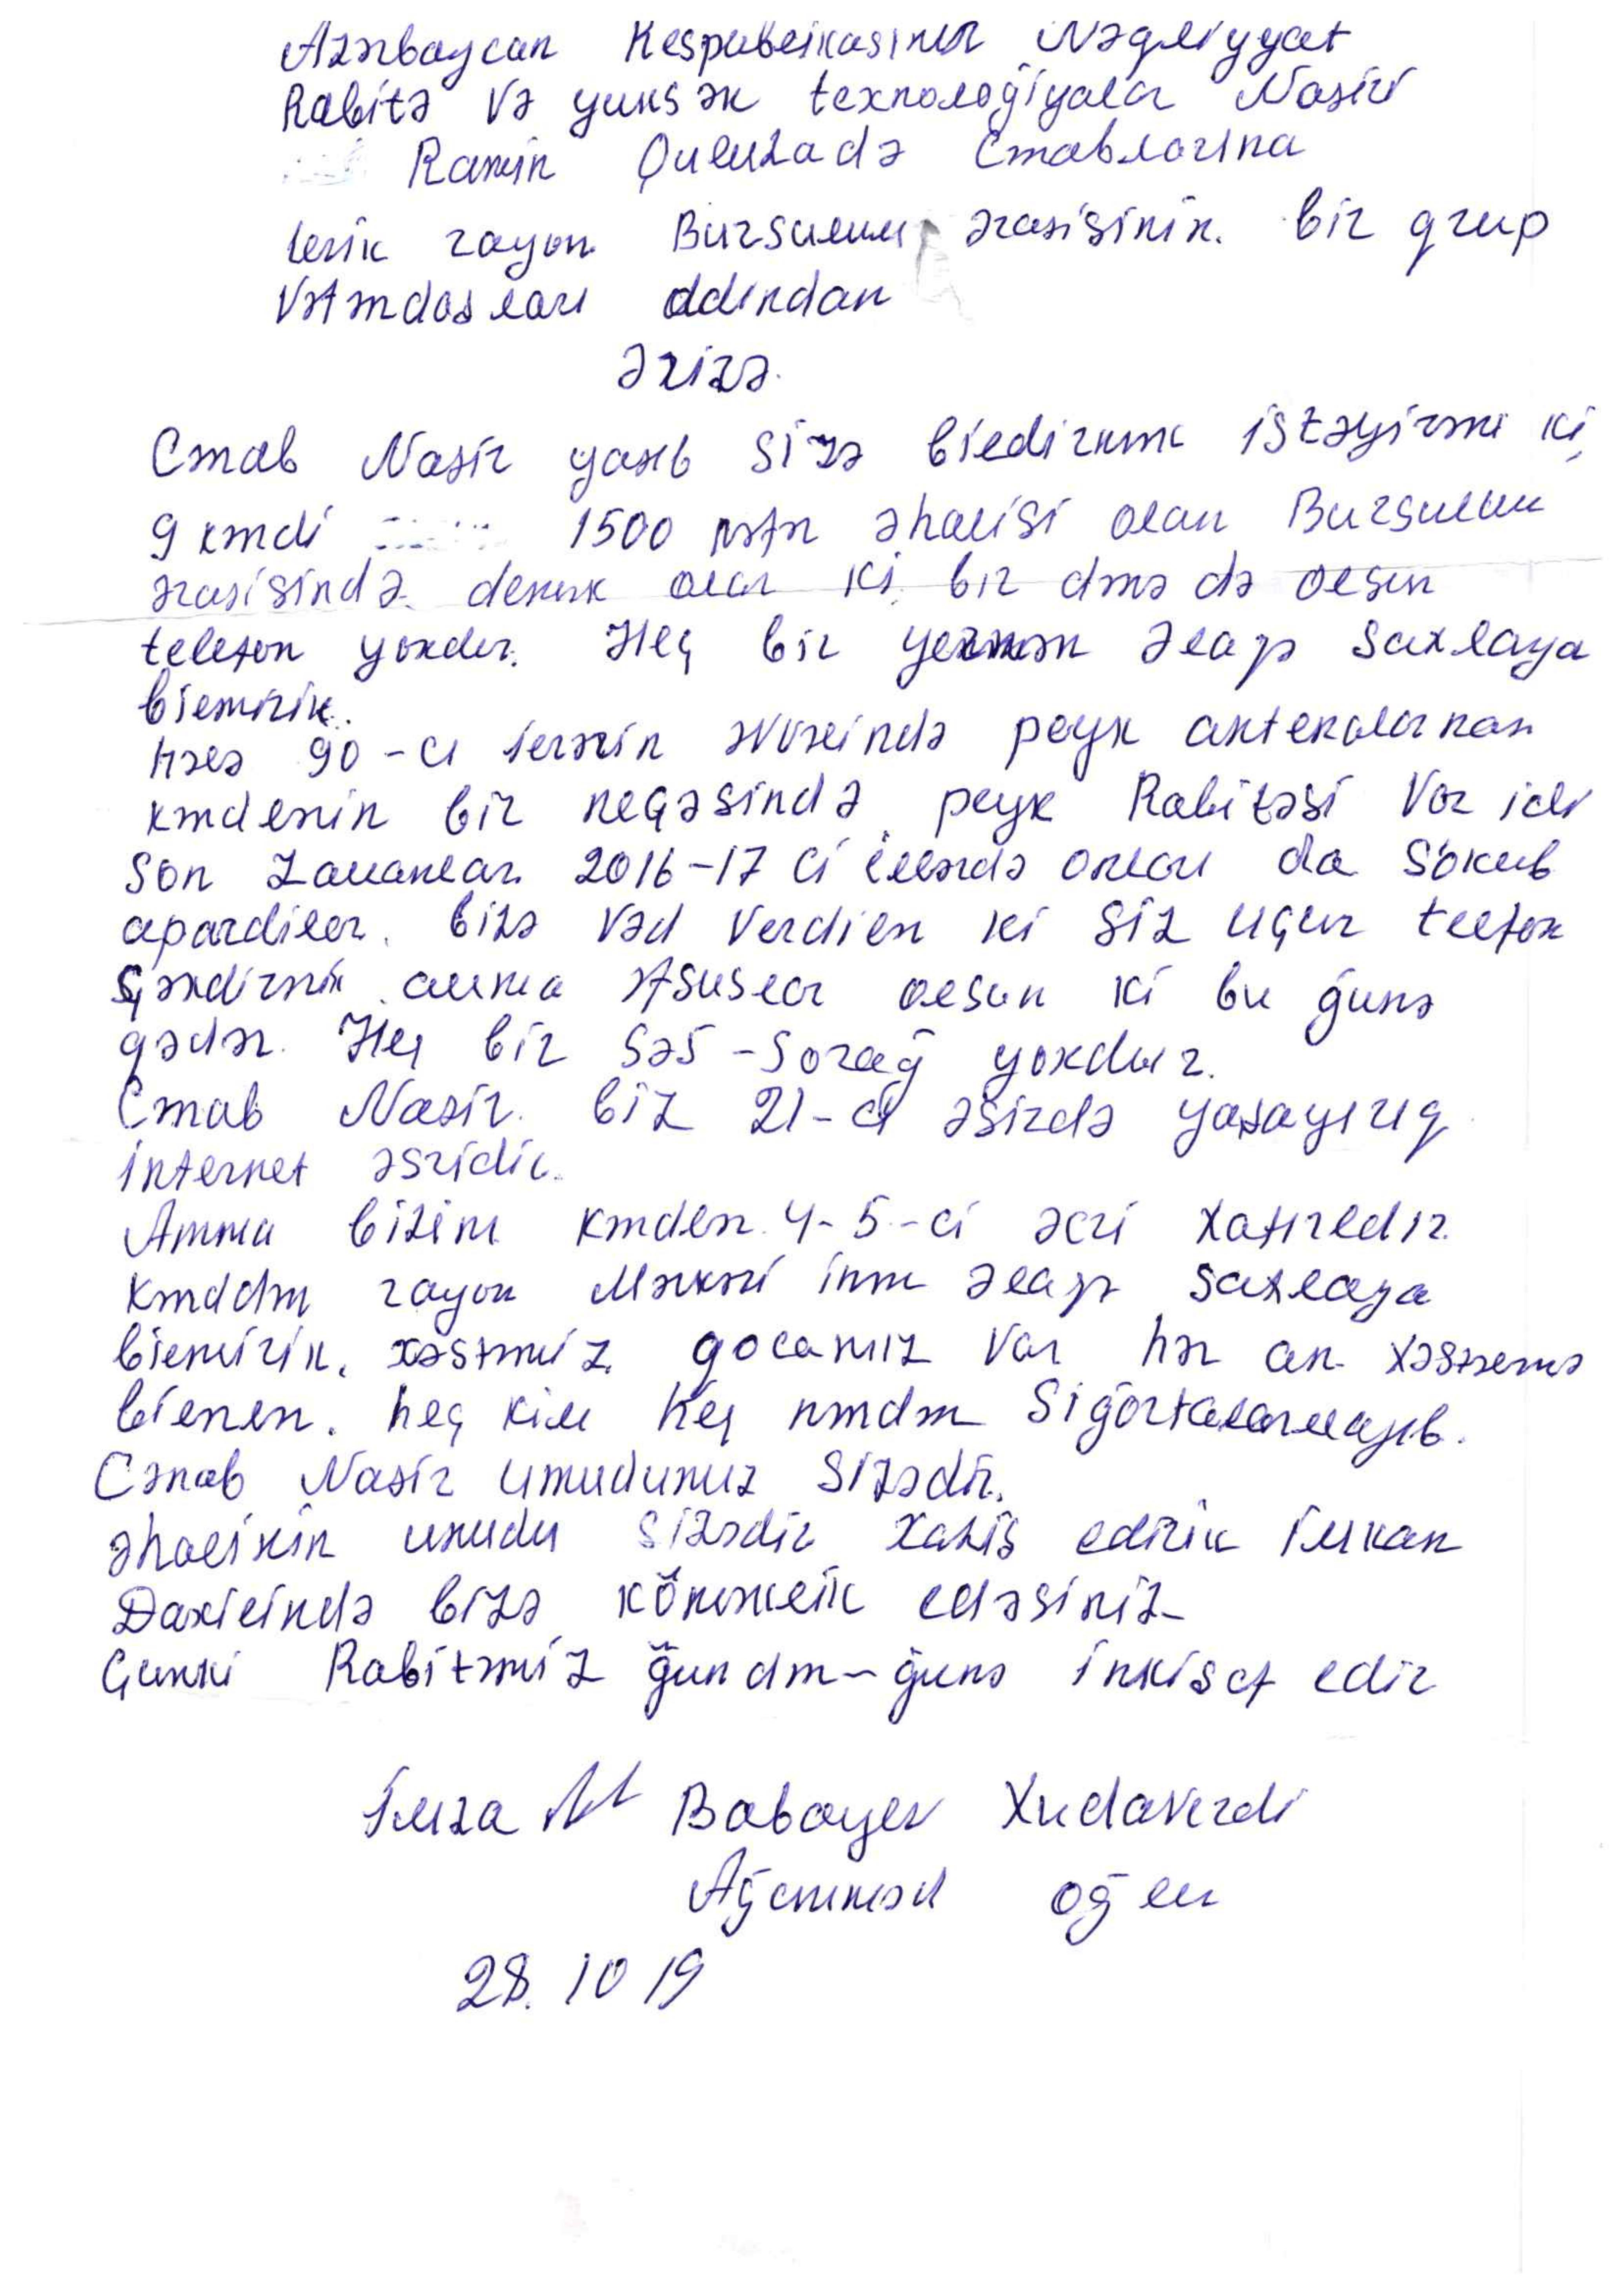 Azərbaycan Respublikasının Nəqliyyat
Rabitə və yuksək texnologiyalar Naziri
Ramin Quluzadə Cənablarına
Lerik rayon BurSulum ərazisinin. bir qrup
Vətəndaşları adından
Ərizə.
Cənab Nazir yazıb Sizə bildirmək istəyirəm ki,
9 kəndi 1500 nəfər əhalisi olan BurSulum
ərazisində. demək olar ki, bir dənə də olsun
telefon yoxdur. Heç bir yernən Əlaqə Saxlaya
bilmirik.
Hələ 90-cı illərin əvvəlində peyk antenalarnan
kəndlərin bir neçəsində peyk Rabitəsi Var idi
Son Zamanlar. 2016-17 ci illərdə onları da Sökub
apardılar. bizə Vəd Verdilər ki SiZ uçun telefon
Çəkdirərik amma əfsuslar olsun ki bu ğunə
qədər. Heç bir Səs-Sorağ yoxdur.
Cənab Nazir. biz 21-ci əsirdə yaşayırıq
internet əsridir.
Amma bizim kəndlər. 4-5-ci əsri Xatırladır.
Kənddən rayon Mərkəzi inən Əlaqə Saxlaya
bilmirik. xəstəmiz. qocamız Var hər an xəstələnə
bilərlər. heç kim heç nədən Siğortalanmayıb.
Cənab Nazir umudumuz Sizədir.
əhalinin umudu Sizədir Xahiş edirik imkan
Daxilində bizə köməklik edəsiniz
Çunki Rabitəmiz ğundən-ğunə inkişaf edir
İmza Babayev Xudaverdi
Ağaməməd oğlu
28. 10 19